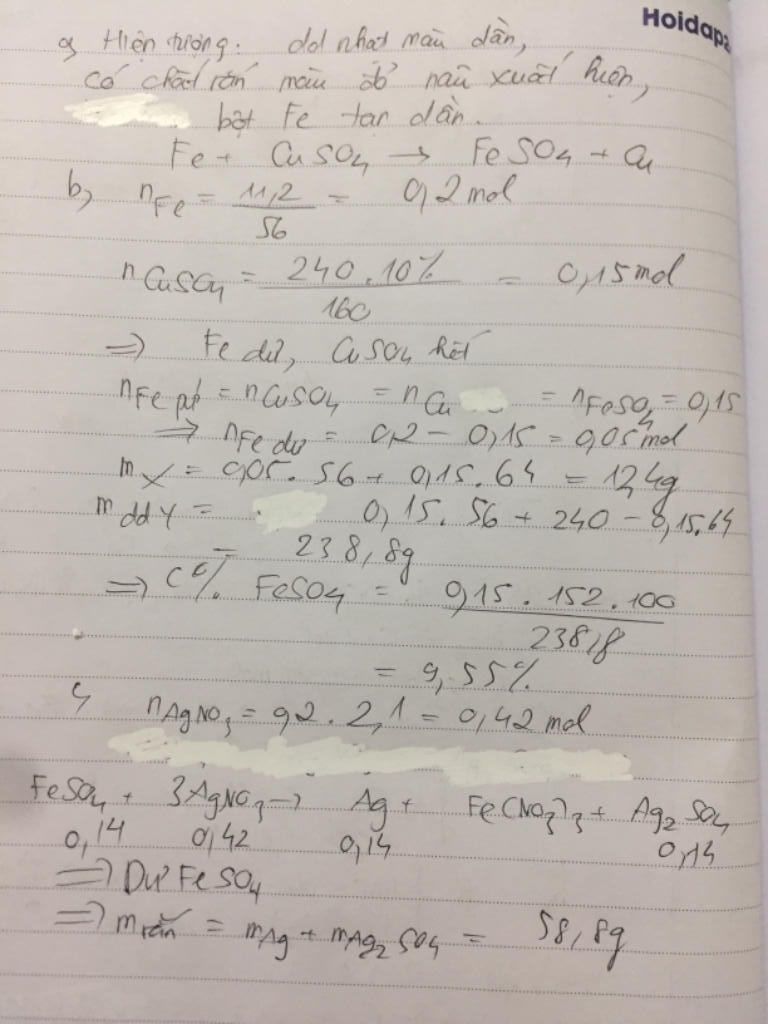 Hoidap2
a, Hiện tượng: dd nhạt màu dần,
có chất rắn màu đỏ nâu xuất hiện,
bột Fe tan dần.
Fe + CuSO4 → FeSO4 + Cu
b, nFe = 11,2 / 56 = 0,2 mol
nCuSO4 = 240.10% / 160 = 0,15 mol
=> Fe dư, CuSO4 hết
nFe pứ = nCuSO4 = nCu = nFeSO4 = 0,15
=> nFe dư = 0,2 - 0,15 = 0,05 mol
mX = 0,05.56 + 0,15.64 = 12,4g
mddY = 0,15.56 + 240 - 0,15.64
= 238,8g
=> C% FeSO4 = 0,15.152.100 / 238,8
= 9,55%
c, nAgNO3 = 0,2.2,1 = 0,42 mol
FeSO4 + 3AgNO3 → Ag + Fe(NO3)3 + Ag2SO4
0,14 0,42 0,14 0,14
=> Dư FeSO4
=> mrắn = mAg + mAg2SO4 = 58,8g